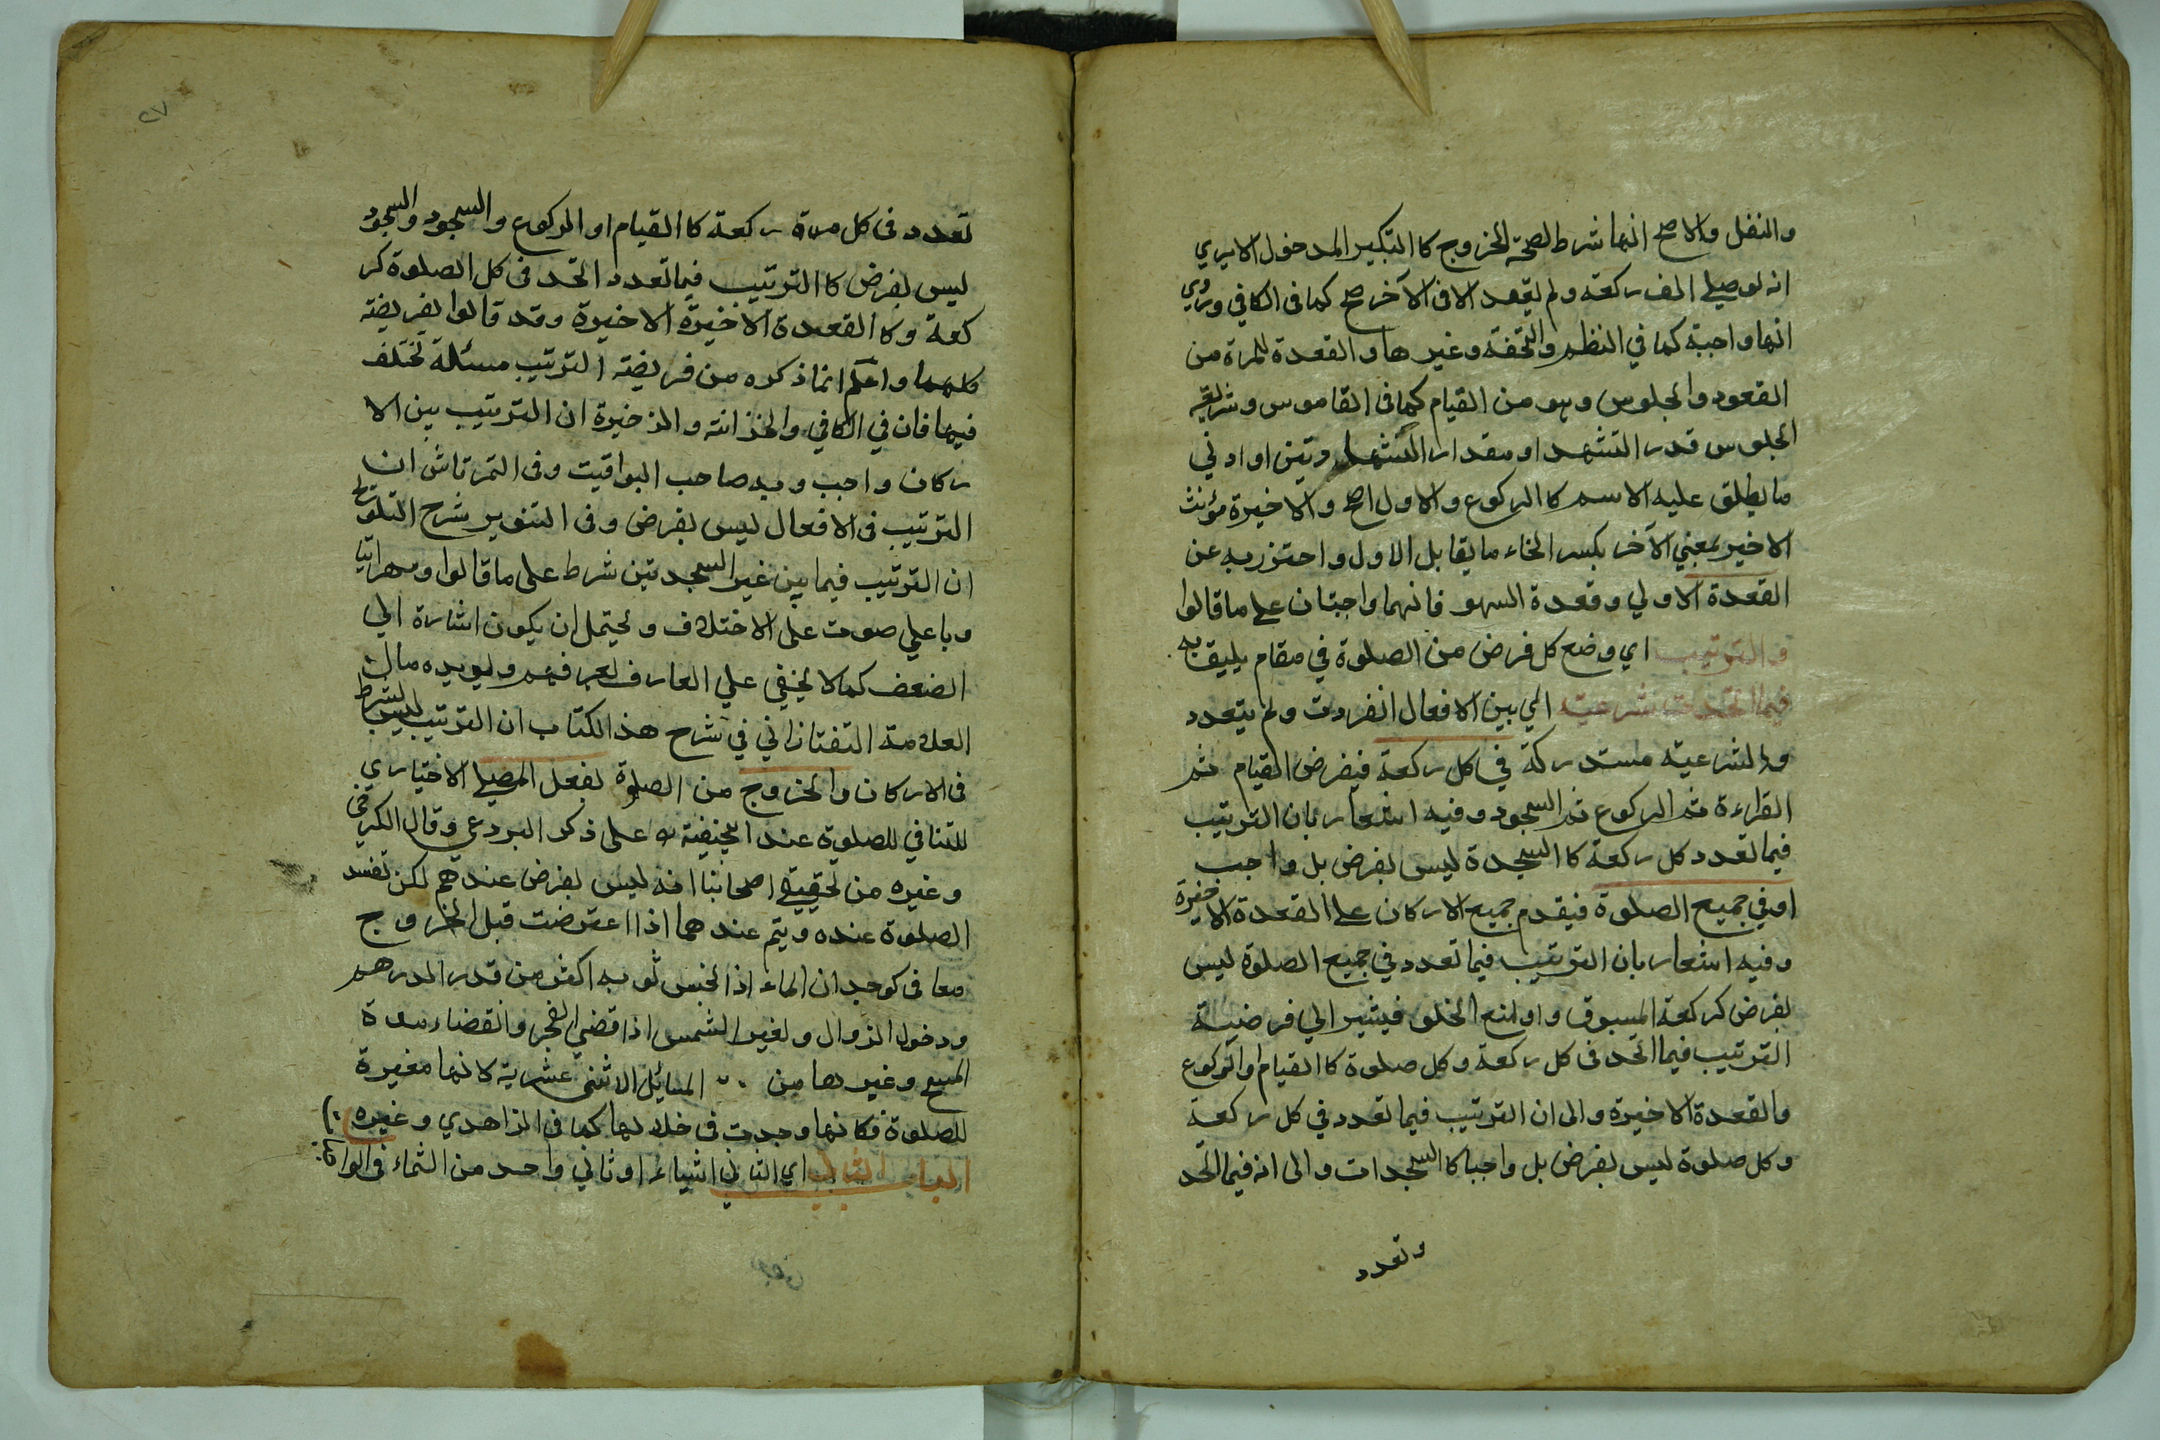 والنفل والاصح انها شرط لصحة الخروج كا التكبير المدخول الا يري
انه لو صلي الف ركعة ولم يقعد الا في الآخر صح كما في الكافي وروي
انها واجبة كما في النظم والتحفة وغيرها والقعدة للمرة من
القعود والجلوس وهو من القيام كما في القاموس وشريعة
الجلوس قدر التشهد او مقدار التشهد وتين او ادني
ما يطلق عليه الاسم كا الركوع والاول اصح والاخيرة مؤنث
الاخير بمعني الآخر بكسر الخاء ما يقابل الاول واحترز به عن
القعدة الاولي وقعدة السهو فانهما واجبتان علي ما قالوا
والترتيب اي وضع كل فرض من الصلوة في مقام يليق به
فيما اتحدت شرعيته الي بين الافعال انفردت ولم يتعدد
والشرعية مستدركة في كل ركعة فيفرض القيام ثم
القراءة ثم الركوع ثم السجود وفيه اشعار بان الترتيب
فيما تعدد كل ركعة كا السجدة ليس بفرض بل واجب
او في جميع الصلوة فيقدم جميع الاركان علي القعدة الاخيرة
وفيه اشعار بان الترتيب فيما تعدد في جميع الصلوة ليس
بفرض كركعة المسبوق واو لمنع الخلو فيشير الي فرضية
الترتيب فيما اتحد في كل ركعة وكل صلوة كا القيام والركوع
والقعدة الاخيرة والى ان الترتيب فيما تعدد في كل ركعة
وكل صلوة ليس بفرض بل واجبا كا السجدات والى انه فيما اتحد
وتعدد
٢٧
تعدد في كل مرة ركعة كا القيام او الركوع والسجود والسجود
ليس بفرض كا الترتيب فيما تعدد اتحد في كل الصلوة كر
كعة وكا القعدة الاخيرة الاخيرة وقد قالوا بفريضته
كلهما واعلم انما ذكره من فريضته الترتيب مسئلة تختلف
فيها فان في الكافي والخزانته والذخيرة ان الترتيب بين الا
ركان واجب وبه صاحب اليواقيت وفي التمرتاش ان
الترتيب في الافعال ليس بفرض وفي التنوير شرح التلويح
ان الترتيب فيما بين غير السجدتين شرط على ما قالوا
وباعلي صوت على الاختلاف ويحتمل ان يكون اشارة الي
الضعف كما لا يخفي علي العارف لعرفهم ويويده مال
العلامة التفتازاني في شرح هذ الكتاب ان الترتيب ليس بشرط
في الاركان والخروج من الصلوة بفعل المصلي الاختياري
للتنافي للصلوة عند ابيحنيفة على ذكر البردعي وقال الكرخي
وغيره من تحقيقي اصحابنا انه ليس بفرض عندهم لكن تفسد
الصلوة عنده ويتم عندهما اذا اعترضت قبل الخروج
معا في كوجدان الماء اذ الجنس ثوبه اكثر من قدر الدرهم
ودخول الزوال ولغير الشمس اذا قضي الفجر وانقضاء مدة
المسح وغيرها من المسائل الاثني عشرية لانها مغيرة
للصلوة فكانها وجدت في خلالها كما في الزاهدي وغيره
اي الثاني اشياء او ثاني واحد من الثماء في